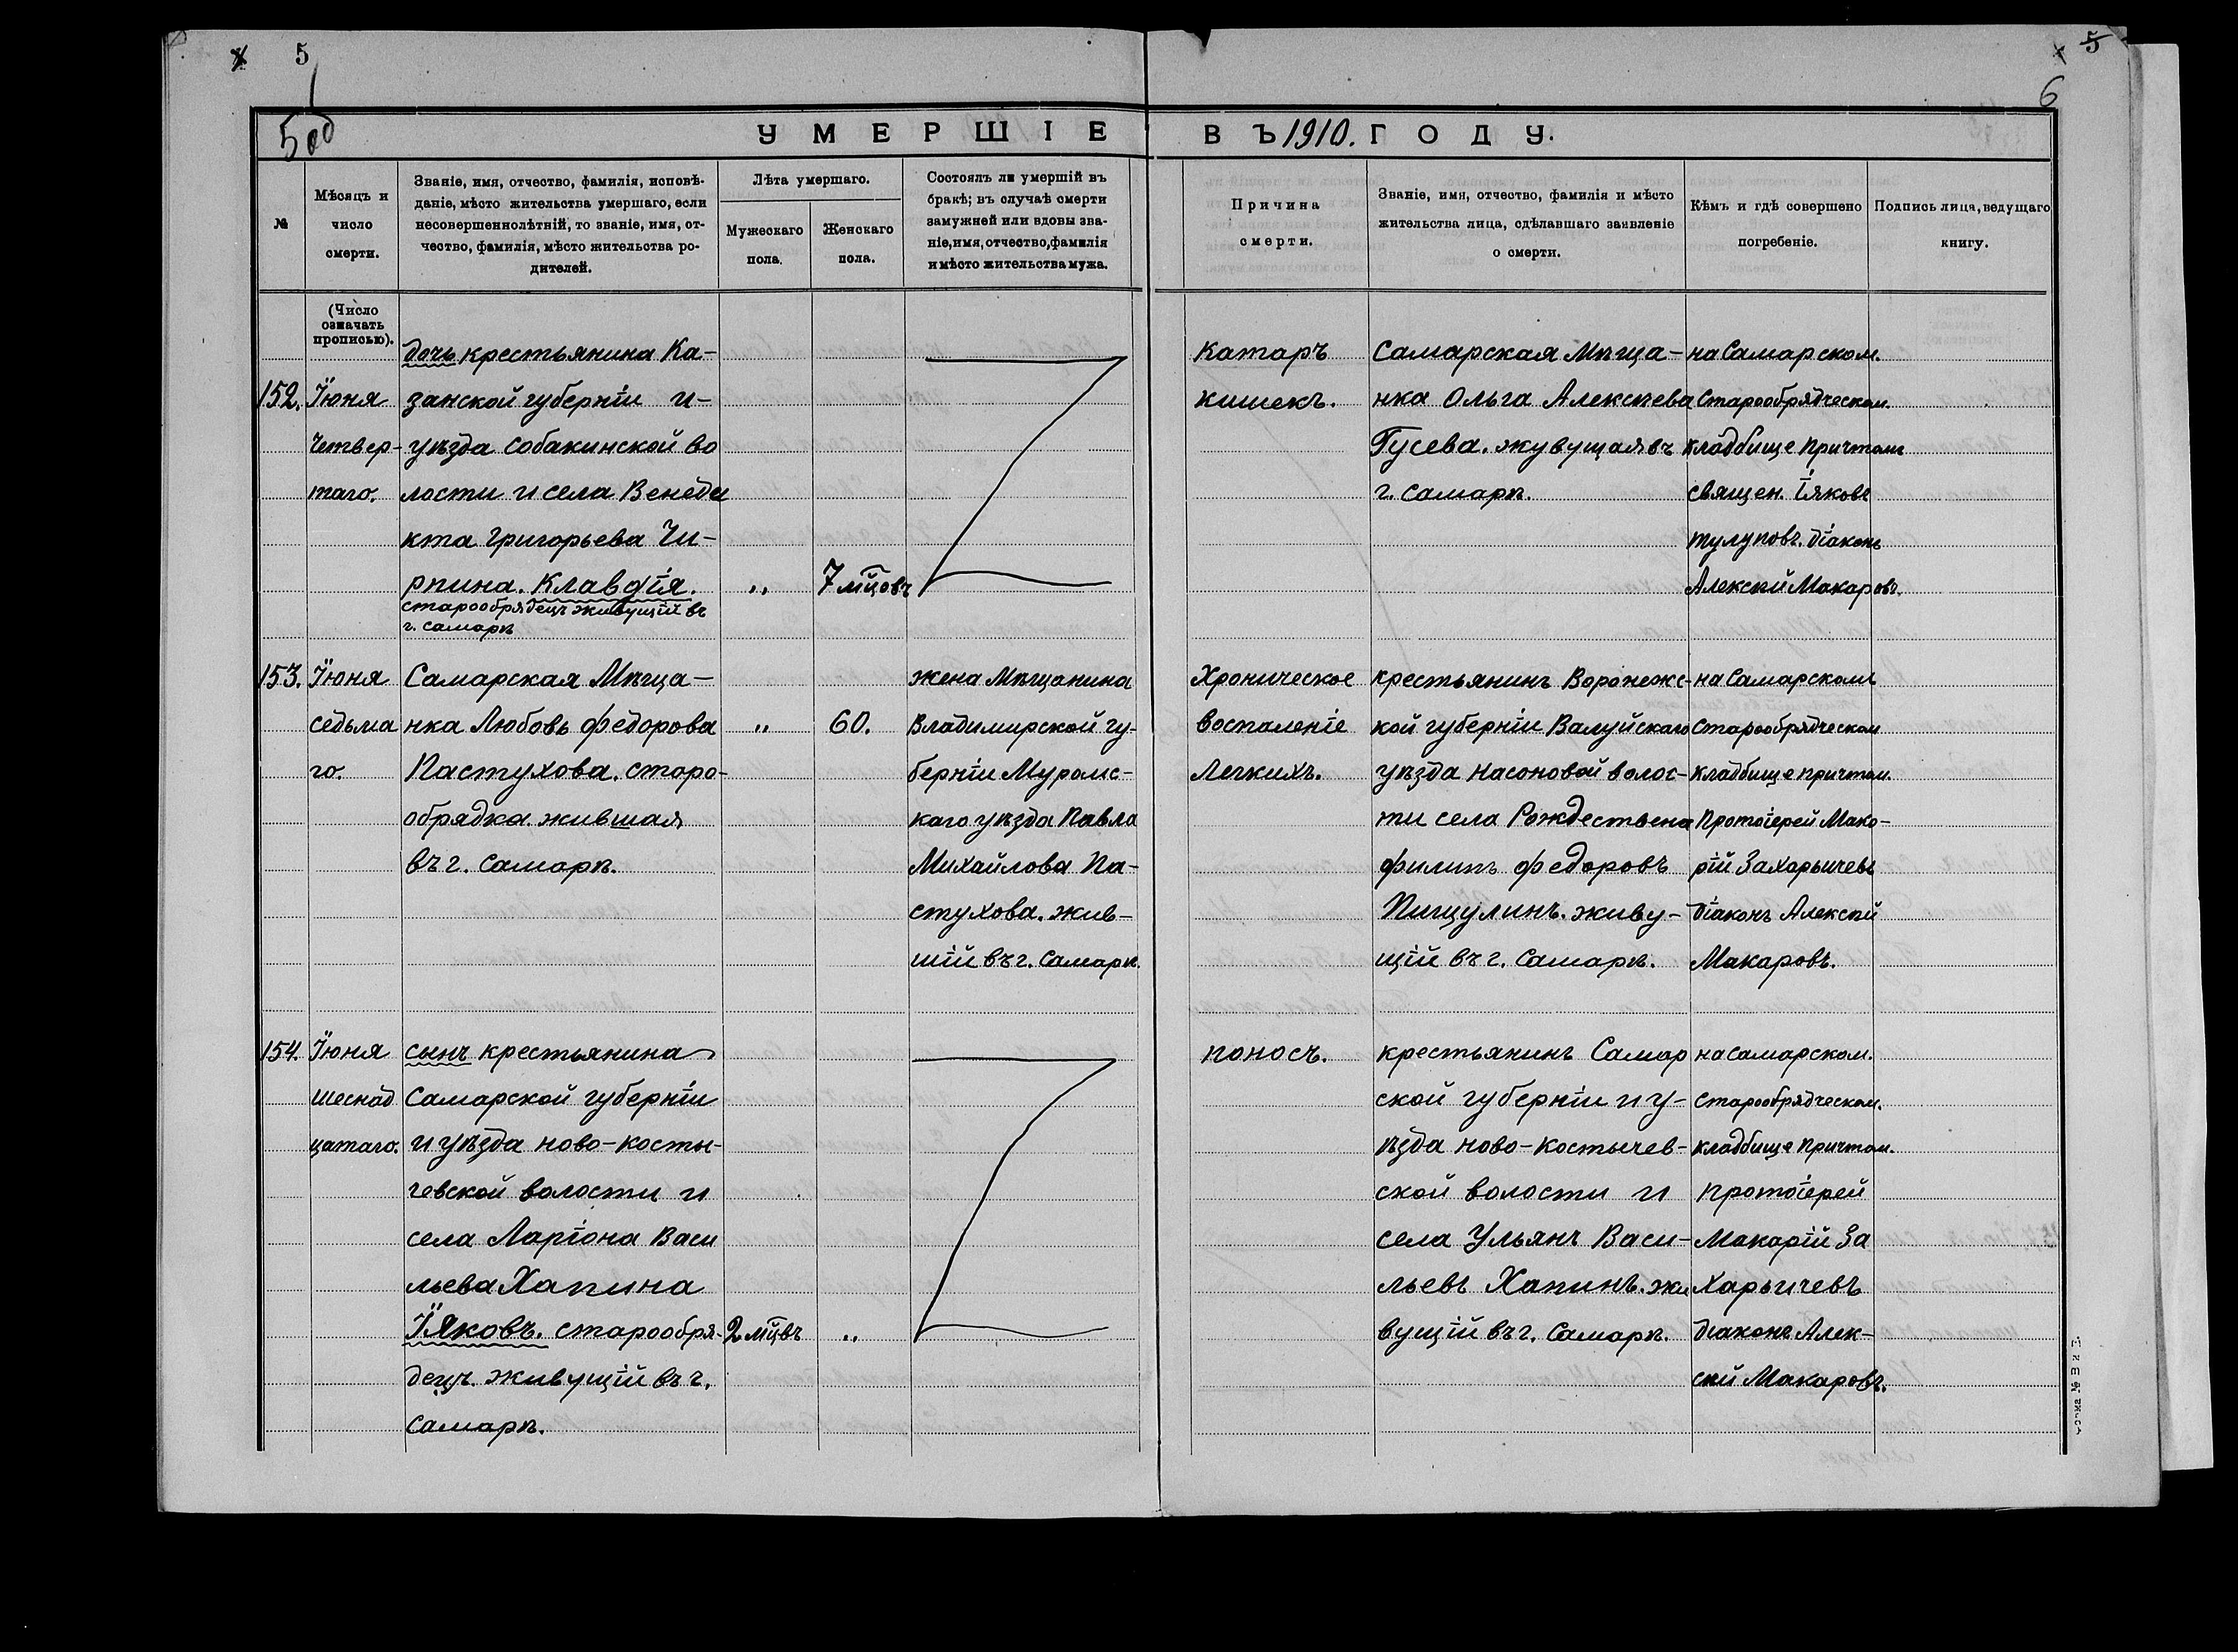 5
5
6
5 об
УМЕРШІЕ ВЪ 1910. ГОДУ.
№
Мѣсяцъ и
число
смерти.
Званіе, имя, отчество, фамилія, исповѣ-
даніе, мѣсто жительства умершаго, если
несовершеннолѣтній, то званіе, имя, от-
чество, фамилія, мѣсто жительства ро-
дителей.
Лѣта умершаго.
Мужескаго
пола.
Женскаго
пола.
Состоялъ ли умершій въ
бракѣ; въ случаѣ смерти
замужней или вдовы зва-
ніе, имя, отчество, фамилія
и мѣсто жительства мужа.
Причина
смерти.
Званіе, имя, отчество, фамилія и мѣсто
жительства лица, сдѣлавшаго заявленіе
о смерти.
Кѣмъ и гдѣ совершено
погребеніе.
Подпись лица, ведущаго
книгу.
(Число
означать
прописью).
152.
Іюня
четвер-
таго.
дочь крестьянина Ка-
занской губерніи и-
уѣзда собакинской во
лости и села Венеди
кта Григорьева Чи-
рпина. Клавдія.
старообрядецъ живущій въ
г. самарѣ
„
7 мцовъ
катаръ
кишекъ.
Самарская Мѣща-
нка Ольга Алексѣева
Гусева. живущая въ
г. самарѣ.
на Самарском.
Старообрядческом.
кладбище причтом
священ. Іяковъ
тулуповъ. діаконъ
Алексѣй Макаровъ.
153.
Іюня
седьма
го.
Самарская Мѣща-
нка Любовь Федорова
Пастухова. старо-
обрядка. жившая
въ г. самарѣ.
„
60.
жена Мѣщанина
Владимирской гу-
берніи Муромс-
каго уѣзда Павла
Михайлова Па-
стухова. жив-
шій въ г. самарѣ.
Хроническое
воспаленіе
легкихъ.
крестьянинъ Воронежс-
кой губерніи Валуйскаго
уѣзда насоновой волос-
ти села Рождествена
филипъ федоровъ
Пищулинъ. живу-
щій въ г. самарѣ.
на Самарскомъ
Старообрядческом
кладбище причтом.
Протоіерей Мака-
рій Захарычевъ
діаконъ Алексѣй
Макаровъ.
154.
Іюня
шеснад
цатаго.
сынъ крестьянина
Самарской губерніи
и уѣзда ново-косты-
чевской волости и
села Ларіона Васи
льева Хапина
Іяковъ. старообря-
децъ. живущій въ г.
самарѣ.
2 мцвъ
„
поносъ.
крестьянинъ Самар
ской губерніи и у-
ѣзда ново-костычев-
ской волости и
села Ульянъ Васи-
льевъ Хапинъ. жи
вущій въ г. самарѣ.
на самарском.
старообрядческом.
кладбище причтом.
протоіерей
Макарій За
харычевъ
діаконъ Алек-
сѣй Макаровъ.